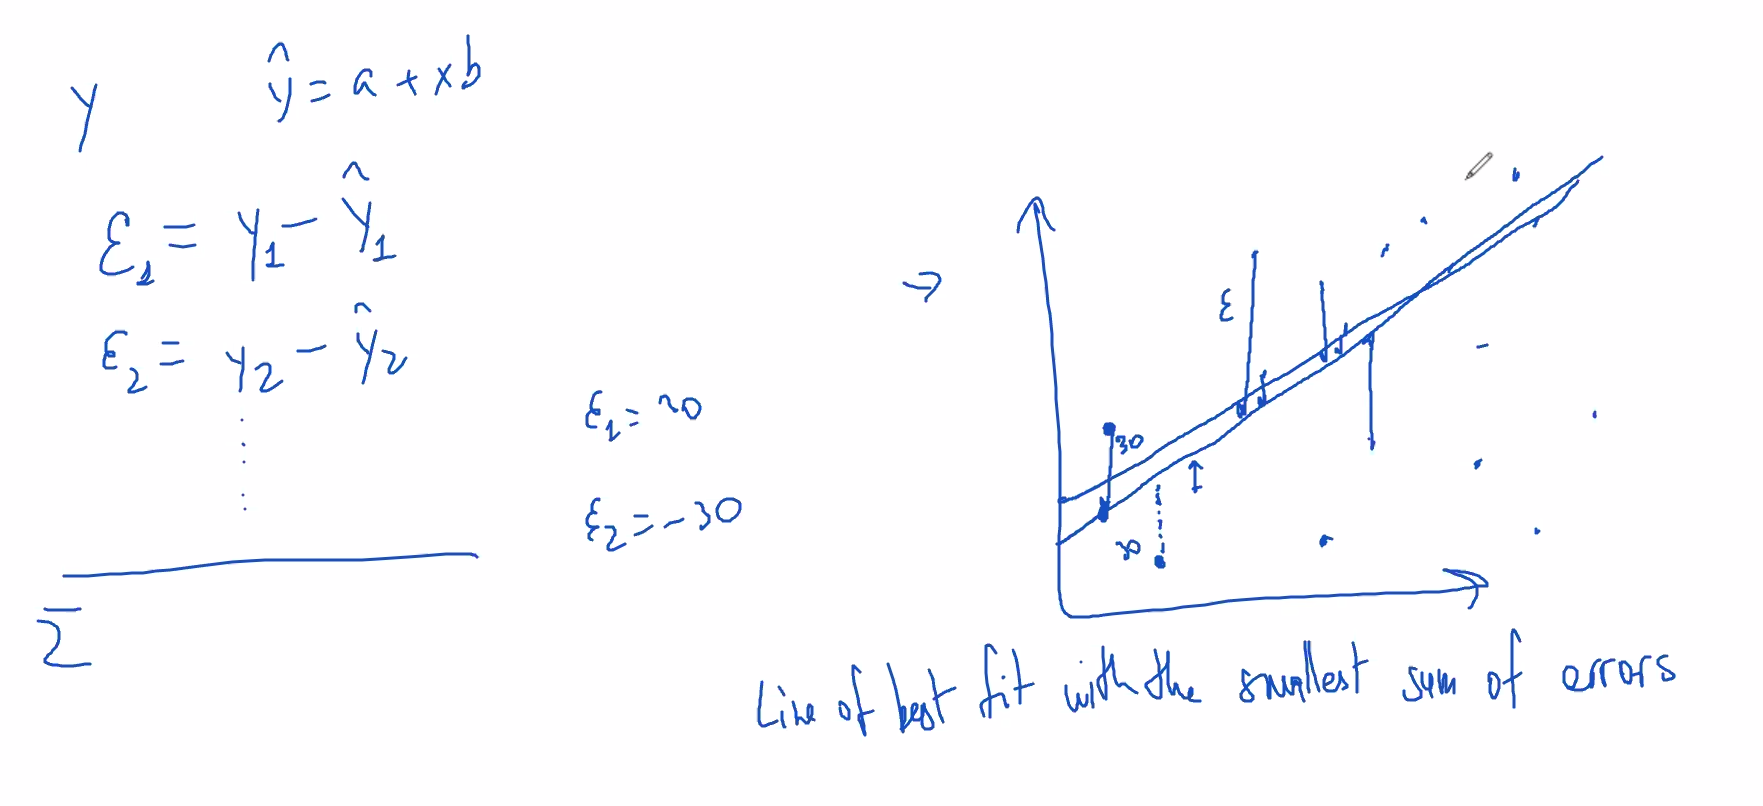 y ŷ = a + xb
ε₁ = y₁ − ŷ₁
ε₂ = y₂ − ŷ₂
Σ
ε₁ = 30
ε₂ = −30
ε
30
30
Line of best fit with the smallest sum of errors